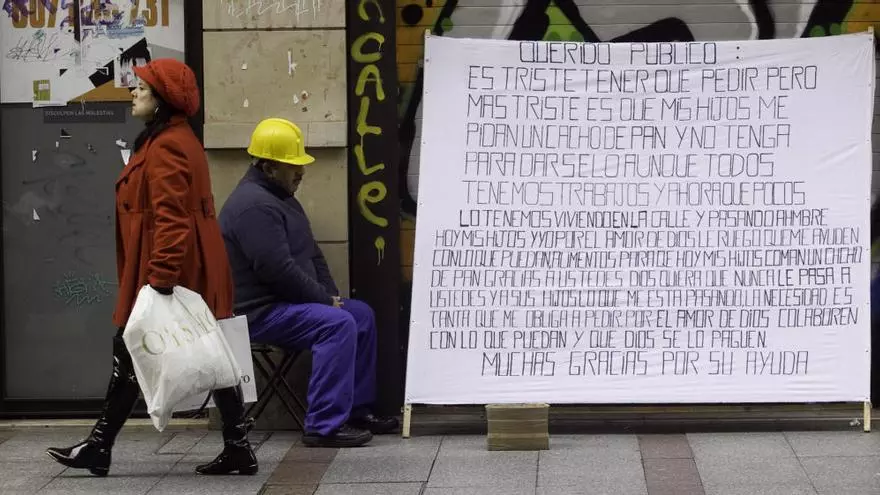 QUERIDO PUBLICO :
ES TRISTE TENER QUE PEDIR PERO
MAS TRISTE ES QUE MIS HIJOS ME
PIDAN UN CACHO DE PAN Y NO TENGA
PARA DARSELO AUNQUE TODOS
TENEMOS TRABAJOS Y AHORA QUE POCOS
LO TENEMOS VIVIENDO EN LA CALLE Y PASANDO AHMBRE
HOY MIS HIJOS Y YO POR EL AMOR DE DIOS LE RUEGO QUE ME AYUDEN
CON LO QUE PUEDAN ALIMENTOS PARA DE HOY MIS HIJOS COMAN UN CACHO
DE PAN GRACIAS A USTEDES DIOS QUIERA QUE NUNCA LE PASA A
USTEDES Y A SUS HIJOS LO QUE ME ESTA PASANDO, LA NECESIDAD ES
TANTA QUE ME OBLIGA A PEDIR POR EL AMOR DE DIOS COLABOREN
CON LO QUE PUEDAN Y QUE DIOS SE LO PAGUEN.
MUCHAS GRACIAS POR SU AYUDA
DISCULPEN LAS MOLESTIAS